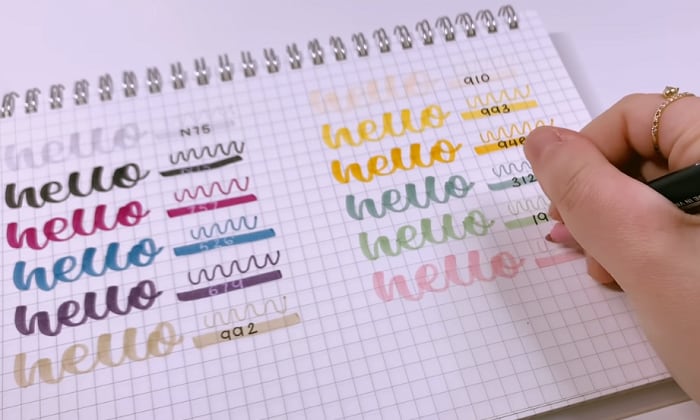 hello N75
hello
hello 757
hello 526
hello 679
hello 992
hello 910
hello 993
hello
hello 312
hello 19
hello